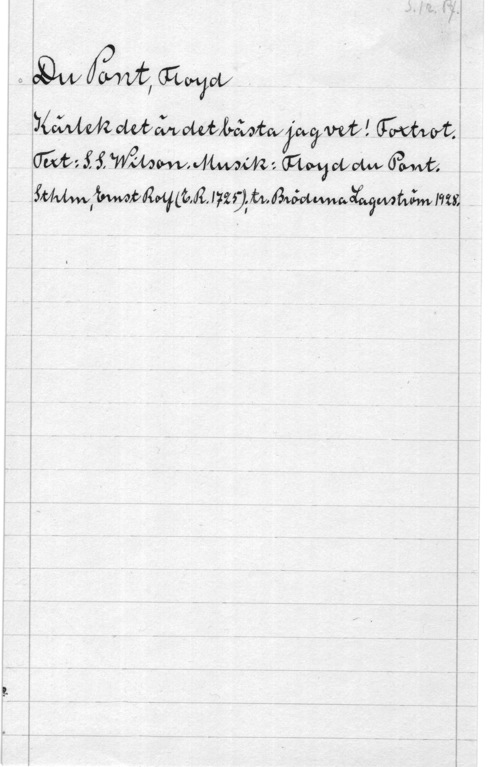 Du Pont, Floyd
Kärlek det är det bästa jag vet! Foxtrot.
Text: S.S. Wilson. Musik: Floyd du Pont.
Sthlm, Ernst Rolf (E.R. 1725), tr. Bröderna Lagerström 1928.